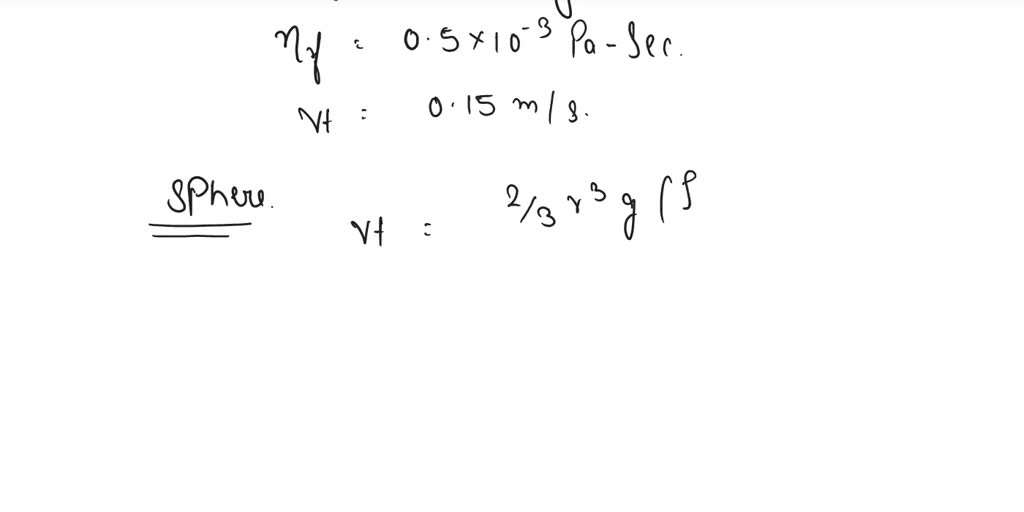 ηf = 0.5×10⁻³ Pa-Sec.
Vt = 0.15 m/s.
Sphere.
Vt = 2/3 r³ g (ρ